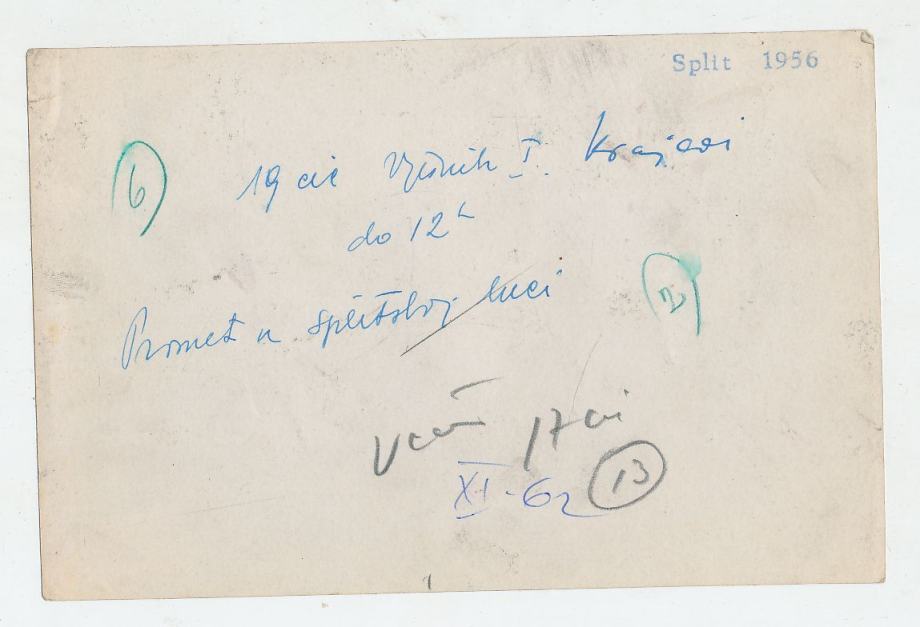 Split 1956
6
19 cic Vjesnik I. Krajevi
do 12h
Promet u splitskoj luci
17 ci
XI-62 13